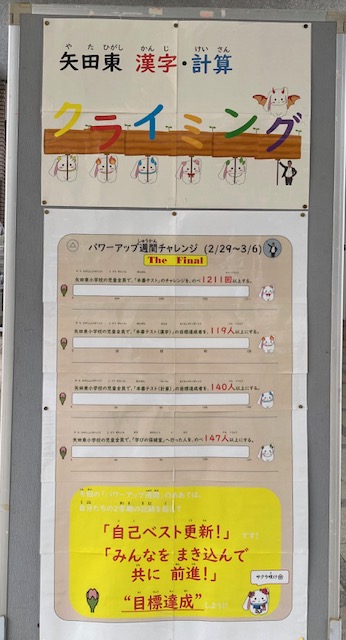 やたひがし かんじ けいさん
矢田東 漢字・計算
クライミング
しゅうかん
パワーアップ週間チャレンジ (2/29～3/6)
The Final
矢田東小学校の児童全員で、「本番テスト」のチャレンジを、のべ1211回以上する。
矢田東小学校の児童全員で、「本番テスト(漢字)」の目標達成者を、119人以上にする。
矢田東小学校の児童全員で、「本番テスト(計算)」の目標達成者を、140人以上にする。
矢田東小学校の児童全員で、「学びの保健室」へ行った人を、のべ147人以上にする。
「自己ベスト更新！」です！
「みんなを まき込んで
共に 前進！」
"目標達成"
サクラ咲け